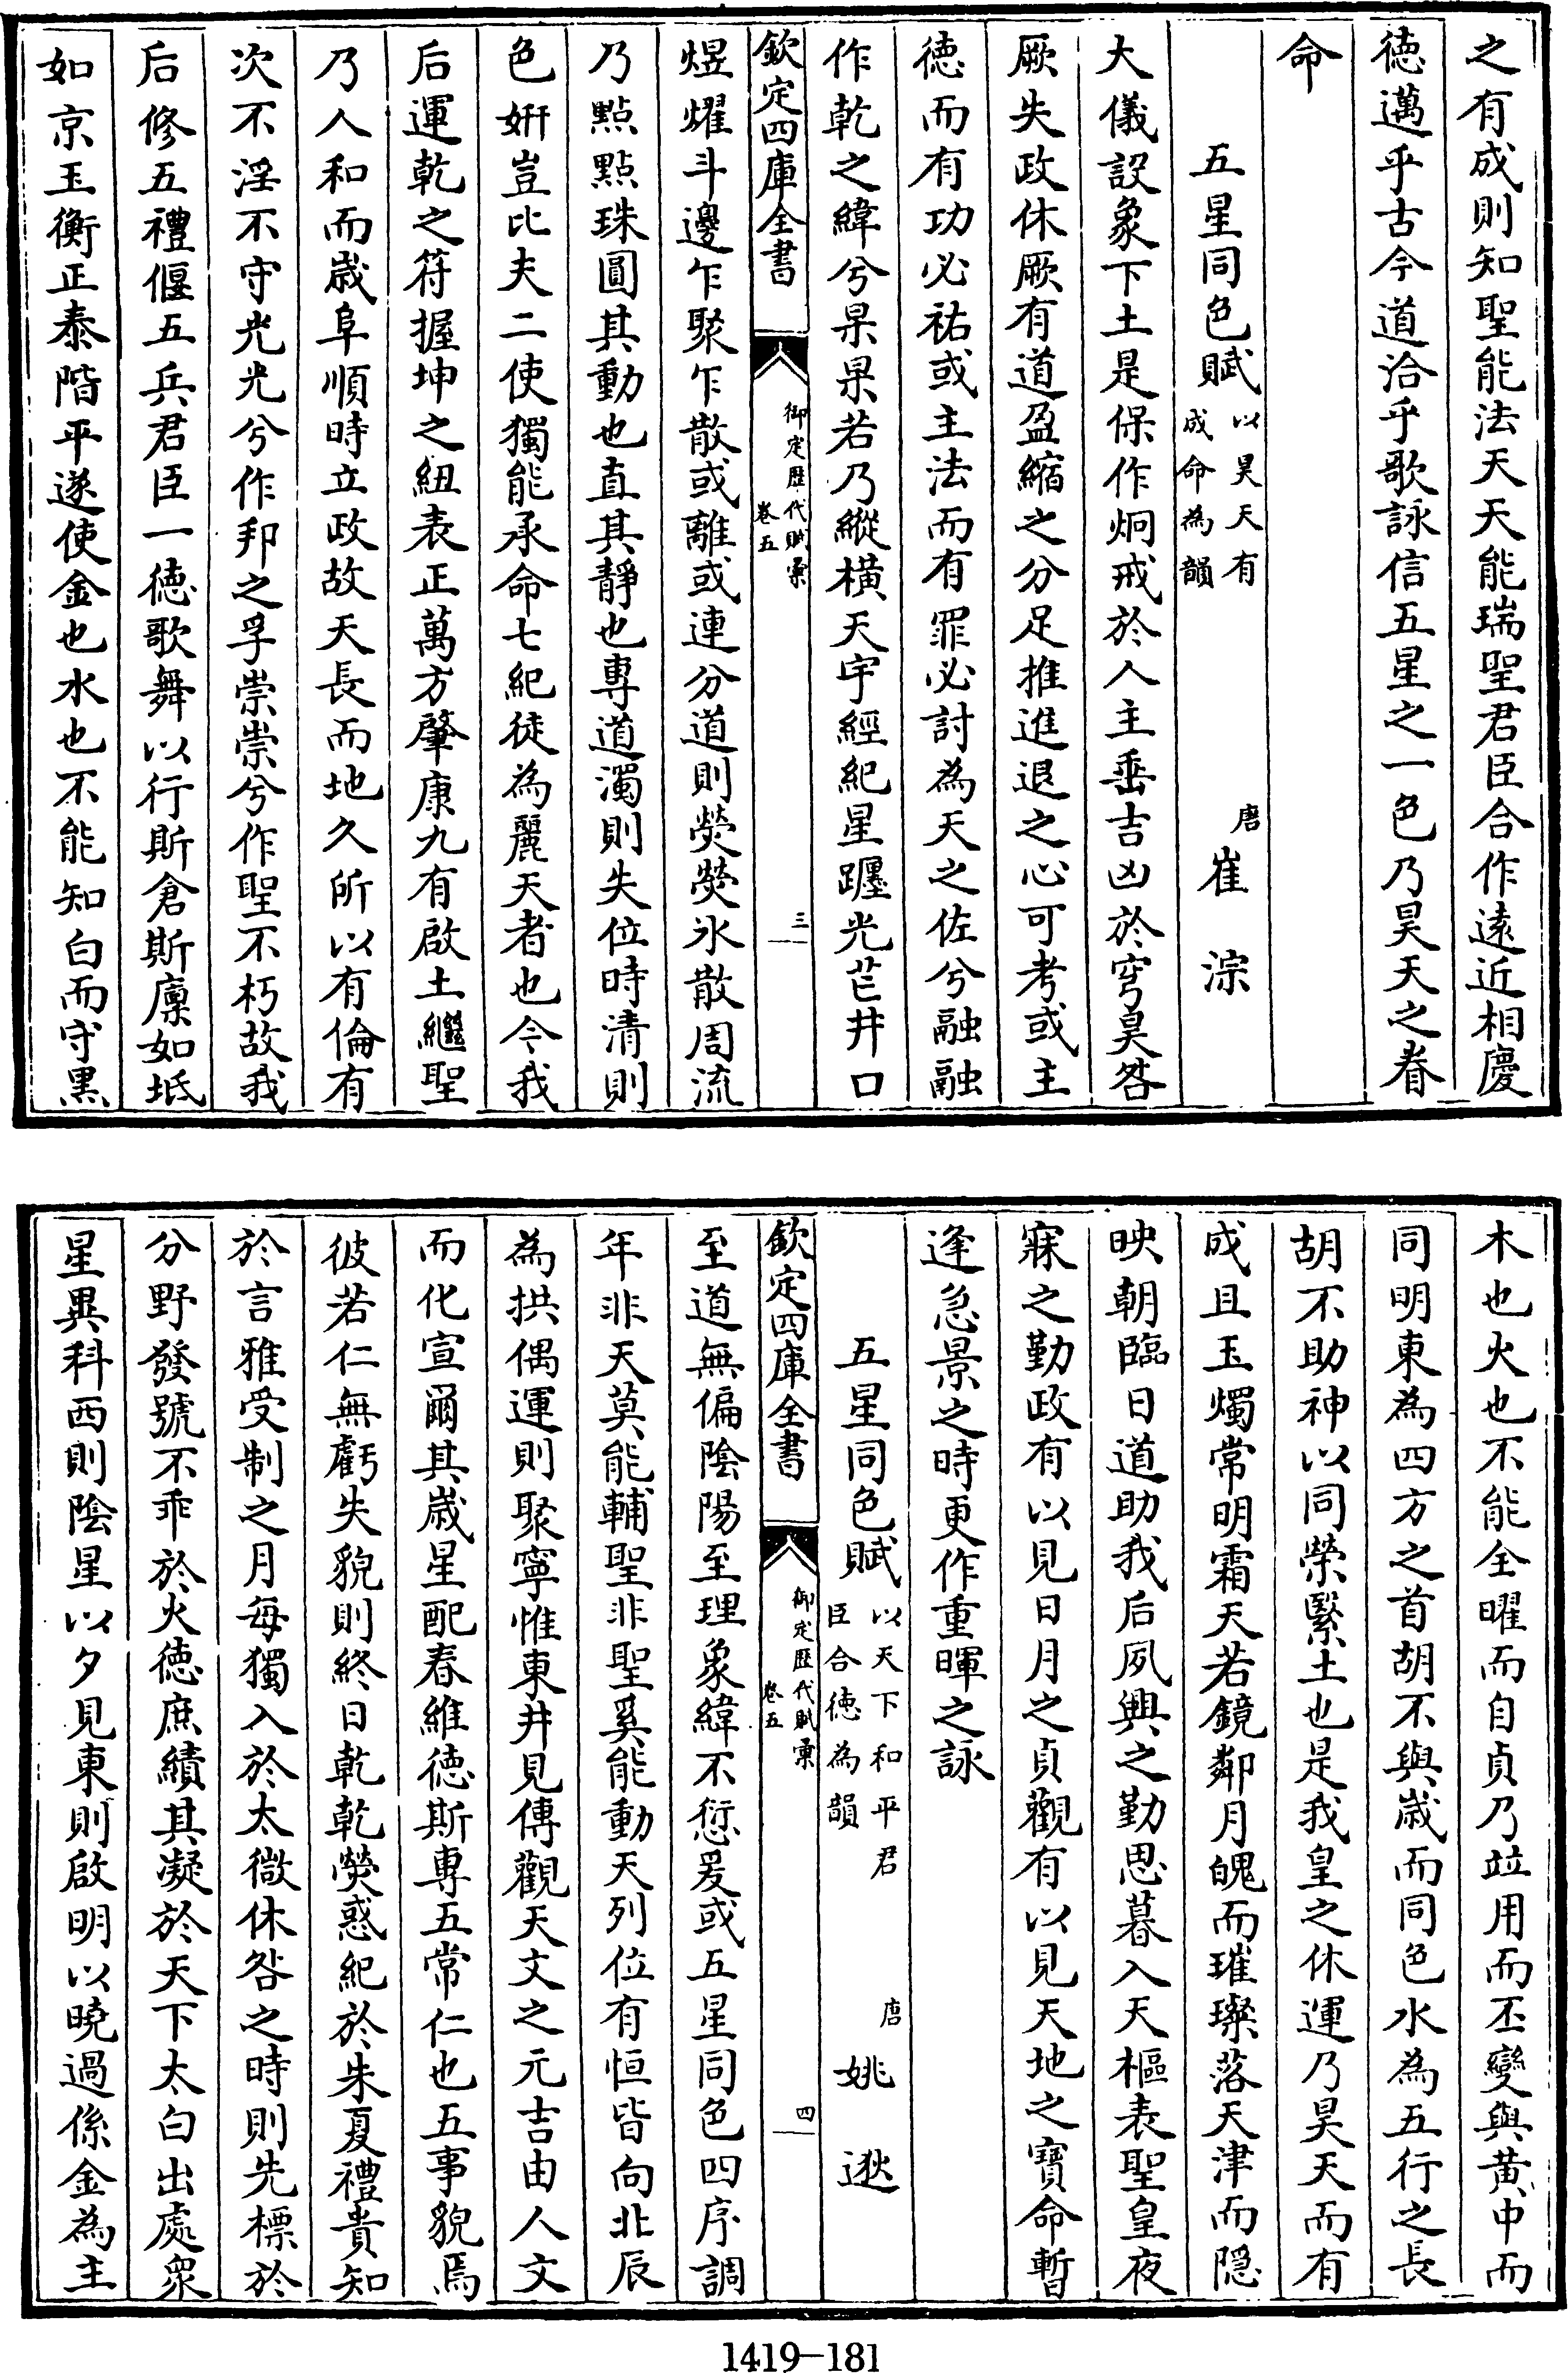 之有成則知聖能法天天能瑞聖君臣合作遠近相慶
徳邁乎古今道洽乎歌詠信五星之一色乃昊天之眷
命
五星同色賦以昊天有成命為韻 唐崔淙
大儀設象下土是保作炯戒於人主垂吉凶於穹昊咎
厥失政休厥有道盈縮之分足推進退之心可考或主
徳而有功必祐或主法而有罪必討為天之佐兮融融
作乾之緯兮杲杲若乃縱橫天宇經紀星躔光芒井口
欽定四庫全書 御定歴代賦彙卷五 三
煜燿斗邊乍聚乍散或離或連分道則熒熒氷散周流
乃點點珠圓其動也直其靜也專道濁則失位時清則
色妍豈比夫二使獨能承命七紀徒為麗天者也今我
后運乾之符握坤之紐表正萬方肇康九有啟土繼聖
乃人和而歳阜順時立政故天長而地久所以有倫有
次不淫不守光光兮作邦之孚崇崇兮作聖不朽故我
后修五禮偃五兵君臣一徳歌舞以行斯倉斯廪如坻
如京玉衡正泰階平遂使金也水也不能知白而守黒
木也火也不能全曜而自貞乃竝用而丕變與黃中而
同明東為四方之首胡不與歳而同色水為五行之長
胡不助神以同榮緊土也是我皇之休運乃昊天而有
成且玉燭常明霜天若鏡鄰月魄而璀璨落天津而隠
映朝臨日道助我后夙興之勤思暮入天樞表聖皇夜
寐之勤政有以見日月之貞觀有以見天地之寶命暫
逢急景之時更作重暉之詠
五星同色賦以天下和平君臣合徳為韻 唐姚逖
欽定四庫全書 御定歴代賦彙卷五 四
至道無偏陰陽至理象緯不愆爰或五星同色四序調
年非天莫能輔聖非聖奚能動天列位有恒皆向北辰
為拱偶運則聚寧惟東井見傳觀天文之元吉由人文
而化宣爾其歳星配春維徳斯專五常仁也五事貌焉
彼若仁無虧失貌則終日乾乾熒惑紀於朱夏禮貴知
於言雅受制之月每獨入於太微休咎之時則先標於
分野發號不乖於火徳庶績其凝於天下太白出處衆
星異科西則陰星以夕見東則啟明以曉過係金為主
1419-181